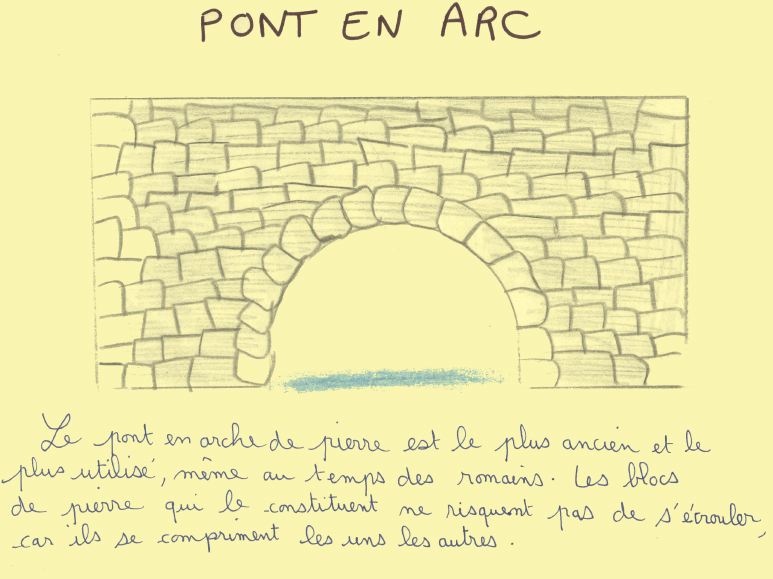 PONT EN ARC
Le pont en arche de pierre est le plus ancien et le
plus utilisé, même au temps des romains. Les blocs
de pierre qui le constituent ne risquent pas de s'écrouler,
car ils se compriment les uns les autres.